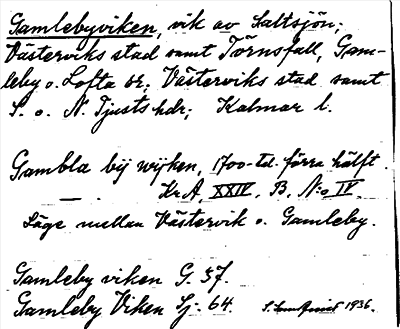 Gamlebyviken, vik av Saltsjön;
Västerviks stad samt Törnsfall, Gam-
leby o. Lofta sr; Västerviks stad samt
S. o. N. Tjusts hdr; Kalmar l.
Gambla bij wijken, 1700-td. förra hälft.
— Kr. A, XXIV, B, N:o IV.
Läge mellan Västervik o. Gamleby.
Gamleby viken G. 37.
Gamleby Viken Sj. 64. 1936.